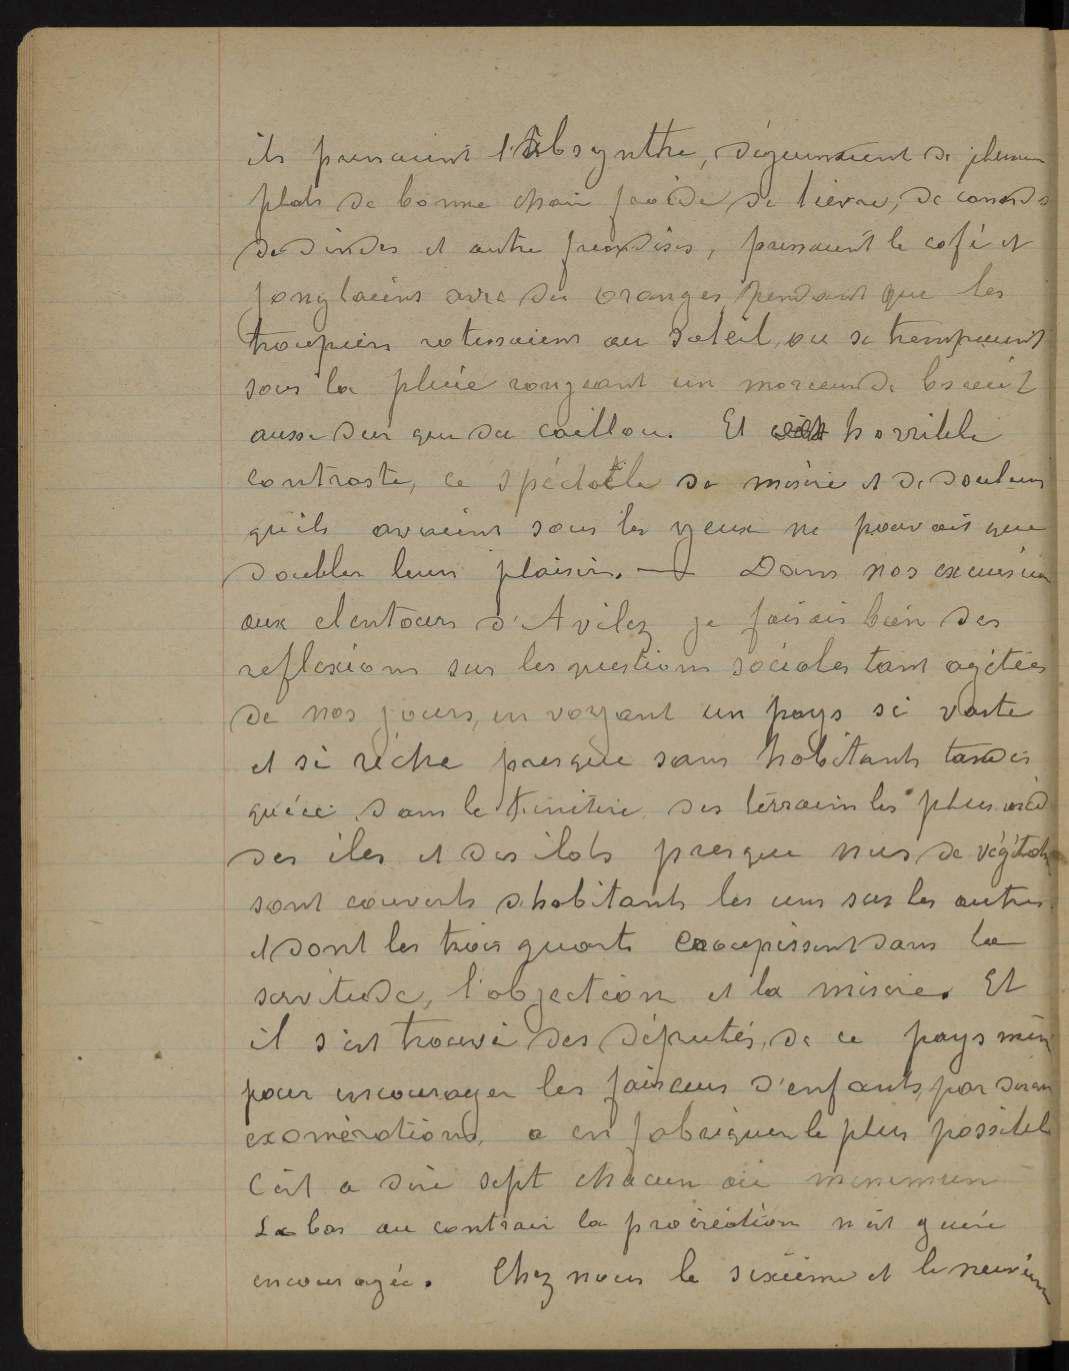 ils prenaient l'absynthe, déjeunaient de plusieurs
plats de bonne chair froide de lièvre, de canards
de dindes et autre friandises, prenaient le café et
jonglaient avec des oranges pendant que les
troupiers rotissaient au soleil, ou se trempaient
sous la pluie rongeant un morceau de biscuit
aussi dur que du caillou. Et horrible
contraste, ce spéctacle de misère et de douleurs
qu'ils avaient sous les yeux ne pouvait que
doubler leur plaisir. — Dans nos excursions
aux alentours d'Avilez je faisais bien des
reflexions sur les questions sociales tant agitées
de nos jours, en voyant un pays si vaste
et si riche presque sans habitants tandis
qu'ici dans le Finitère des terrains les plus
des iles et des ilots presque nus de végétat
sont couverts d'habitants les uns sur les autres
et dont les trois quarts croupissent dans la
servitude, l'abjection et la misère. Et
il s'est trouvé des députés, de ce pays même
pour encourager les faiseurs d'enfants, par
exonèrations, a en fabriquer le plus possible
C'est a dire sept chacun au minimum
La bas au contraire la procréation n'est guère
encouragée. Chez nous le sixième et le neuvième